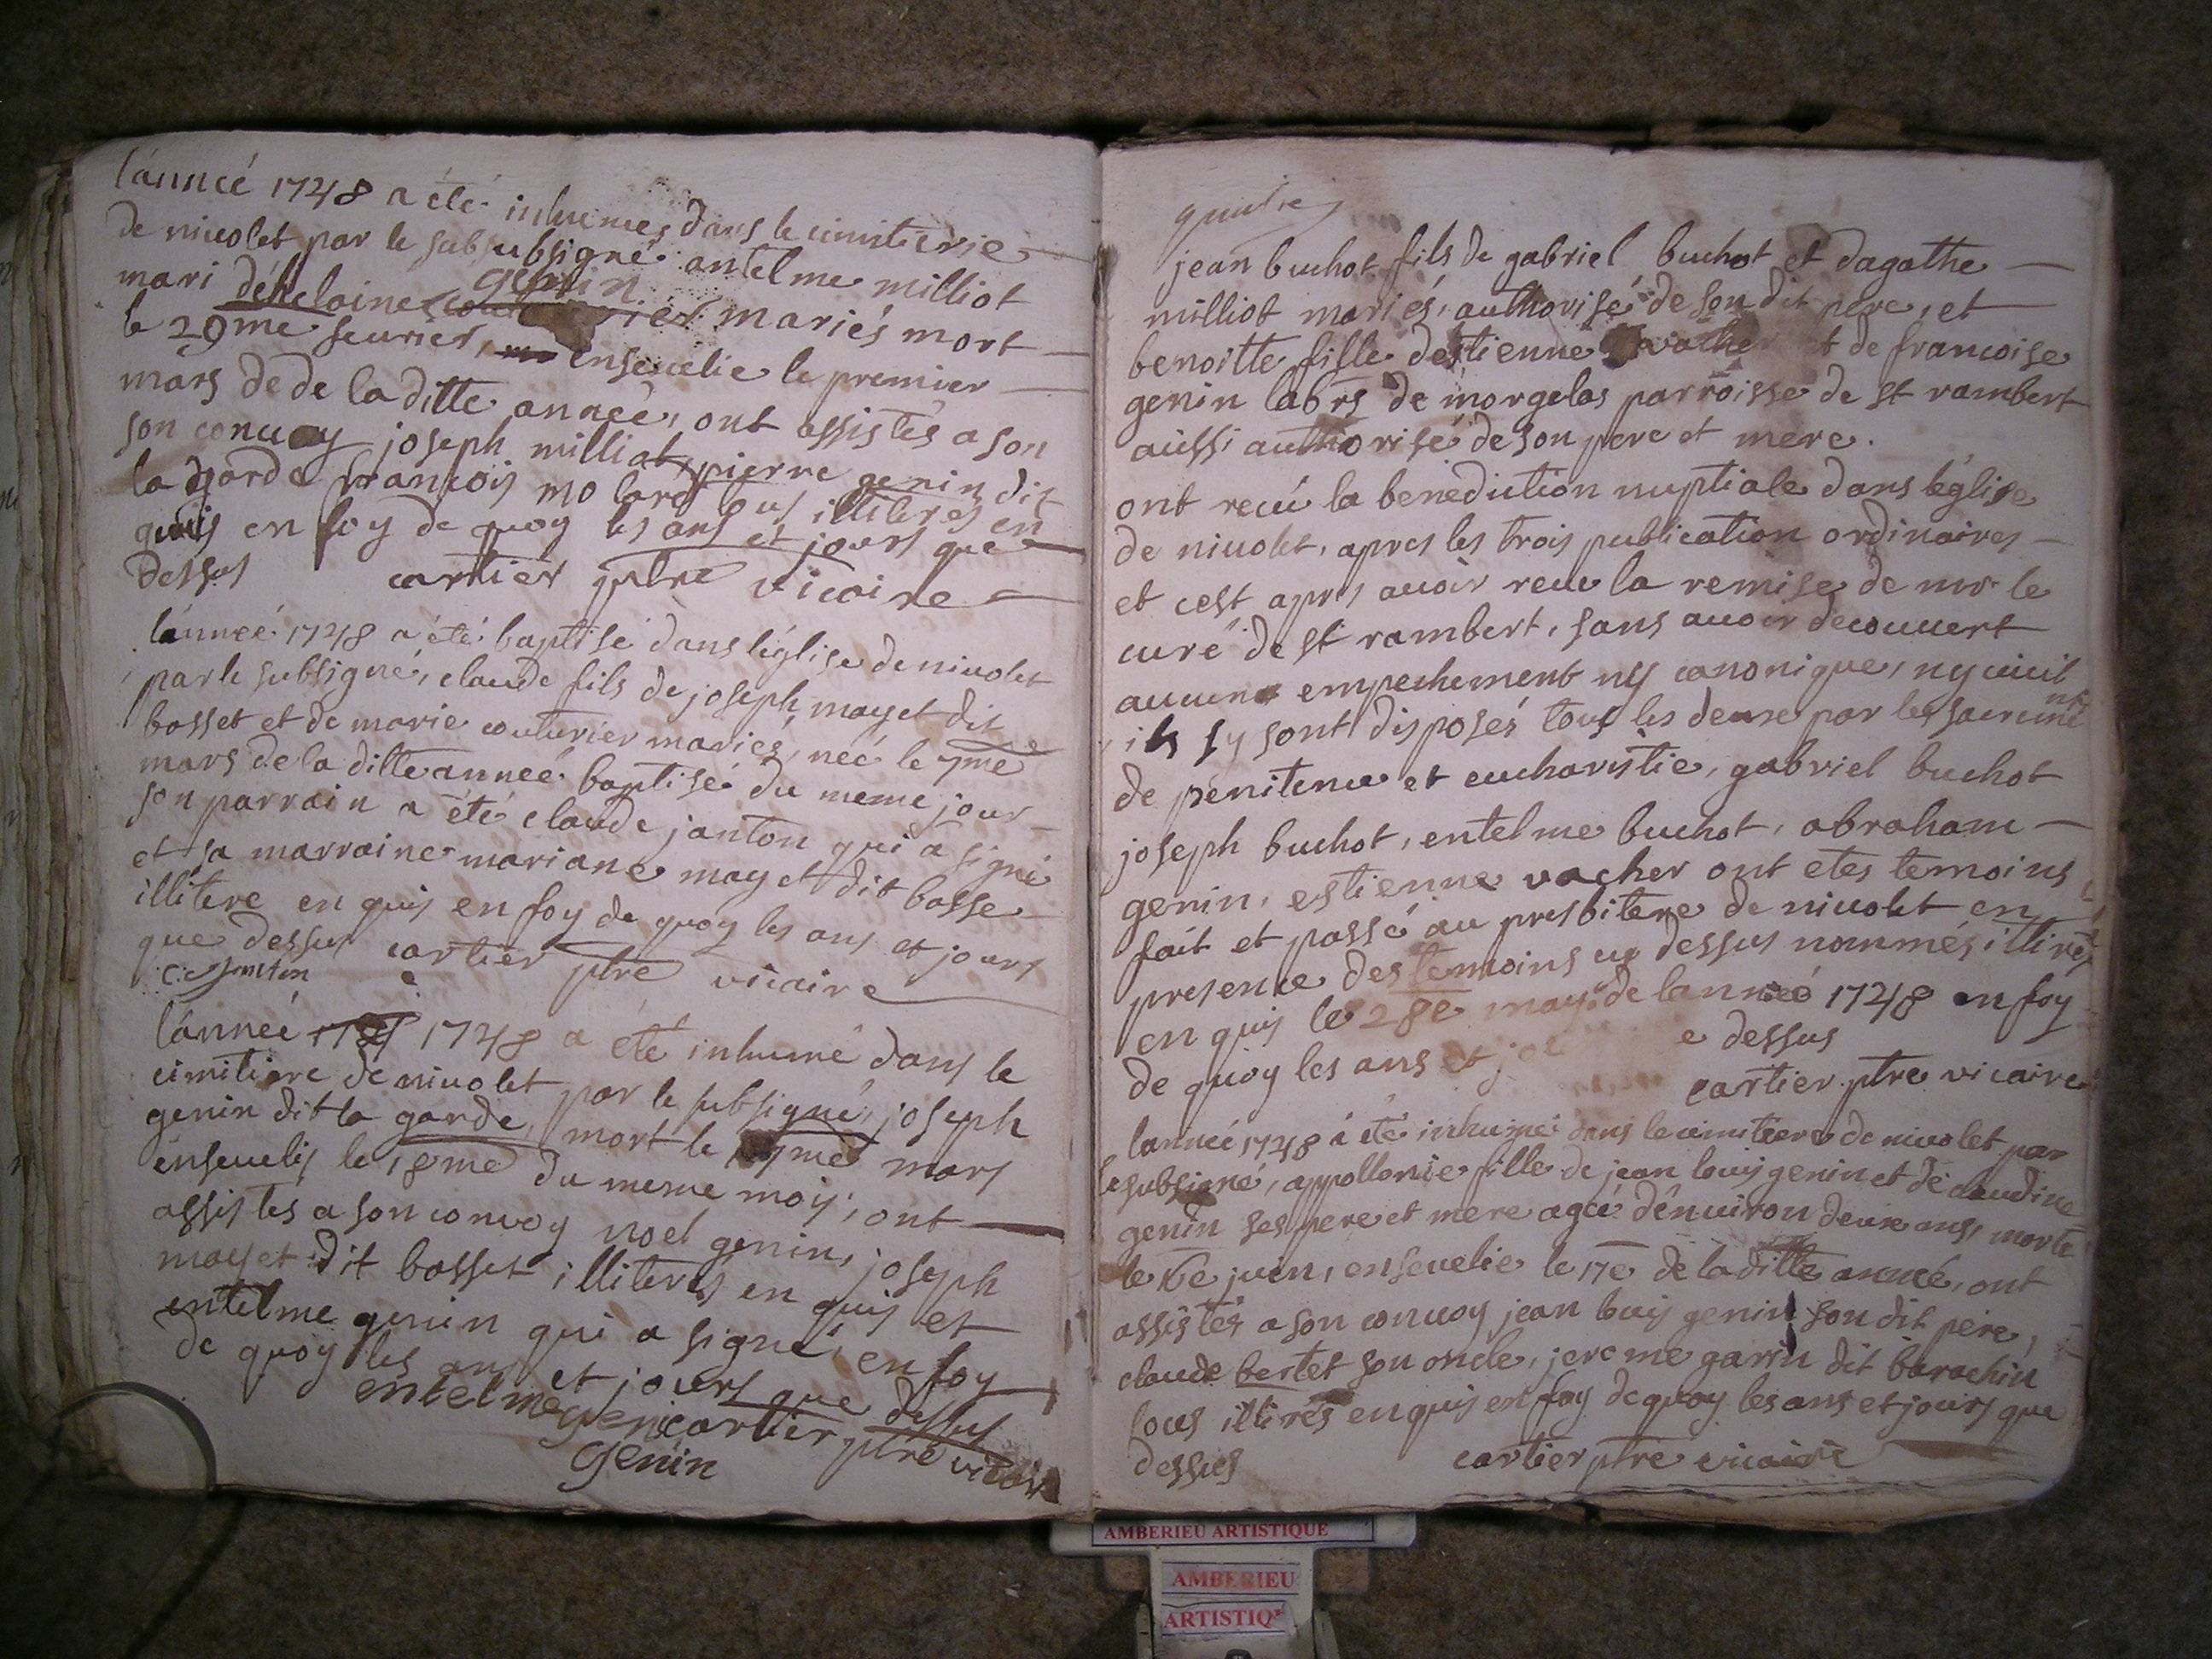 lánneé 1748 a été inhumes dans le cimitierie
de nivolet par le subsubsigné antelme milliot
genin
mari déhelaine mariés mort
le 29me feurier, enseuelie le premier
mars de de la ditte anneé, ont assistés a son
son conuoy joseph milliat, pierre genin dit
la garde francois molard tous illiterés en
quis en foy de quoy les ans et jours que
dessus cartier ptre vicaire
lánneé 1748 a été baptisé dans léglise de nivolet
par le subsigné, claude fils de joseph mayet dit
bosset et de marie couturier mariés, neé le 7me
mars de la ditte anneé baptisé du meme jour
son parrain a été claude janton qui a signé
et sa marraine mariane mayet dit bosse
illitere en quis en foy de quoy les ans et jours
que dessus cartier ptre vicaire
c janton
lánneé 1748 a été inhumé dans le
cimitiere de nivolet par le subsigné, joseph
genin dit la garde, mort le mars
énseuelis le 18me du meme mois, ont
assistes a son convoy noel genin, joseph
mayet dit bosset illiterés en quis et
entelme genin qui a signé, en foy
de quoy les ans et jours que dessus
entelme cartier ptre vicair
Genin
jean buchot fils de gabriel buchot et dagathe
milliot mariés, authorisé de son dit pere, et
benoitte fille destienne vacher et de francoise
genin labrs de morgelas parroisse de st rambert
aussi authorisé de son pere et mere.
ont recu la benediction nuptiale dans léglise
de nivolet, apres les trois publication ordinaires
et cest apres auoir receu la remise de mr le
curé de st rambert, sans auoir decouuert
aucune empechement ny canonique, ny ciuil
ils sy sont disposés tous les deux par les sacrumt
de penitence et eucharistie, gabriel buchot
joseph buchot, entelme buchot, abraham
genin, estienne vacher ont etes temoins
fait et passé au presbitere de nivolet en
presence des temoins cy dessus nommés illirés
en quis le 28e may de lanneé 1748 en foy
de quoy les ans et jo e dessus
cartier ptre vicaire
lanneé 1748 a été inhumé dans le cimitiere de nivolet par
le subsigné, appollonie fille de jean louis genin et dé claudine
genin ses pere et mere ageé dénuiron deux ans, morte
le 16e juin, enseuelie le 17e de la ditte anneé, ont
assistés a son conuoy jean louis genin son dit pere,
claude bertet son oncle, jerome garin dit barachin
tous illirés en quis en foy de quoy les ans et jours que
dessus cartier ptre vicaire
AMBERIEU ARTISTIQUE
AMBERIEU
ARTISTIQ